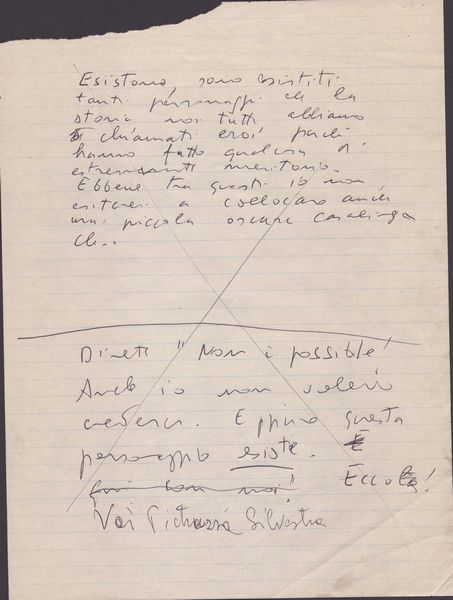 Esistono, sono esistiti
tanti personaggi che la
storia noi tutti abbiamo
chiamati eroi perché
hanno fatto qualcosa di
estremamente meritorio.
Ebbene tra questi io non
esiterei a collocare anche
una piccola oscura casalinga
che..
Direte "Non è possibile!
Anch io non volevo
crederci. Eppure questa
personaggio esiste.
qui con noi." Eccola!
Vai Silvestra